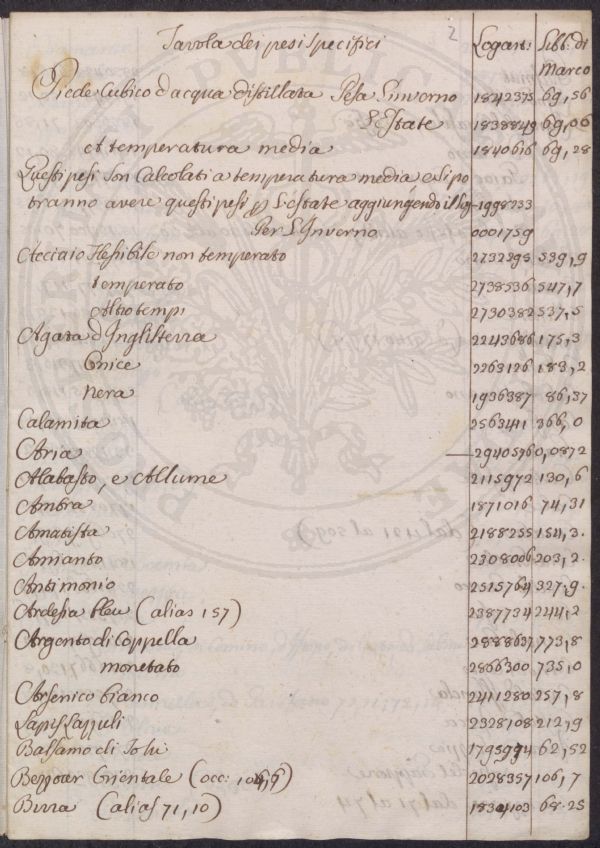 Tavola dei pesi specifici 2 Logari: Libb: di
Marco
Piede Cubico d'acqua distillata Pesa L'inverno 1842375 69,56
L'Estate 1838849 69,06
a temperatura media 1840616 69,28
Questi pesi son Calcolati a temperatura media e si po
tranno avere questi pesi per L'Estate aggiungendo il log -1998233
Per L'Inverno 0001759
Acciaio flessibile non temperato 2732395 539,9
temperato 2738536 547,7
Altro tempi 2730382 537,5
Agata d'Inghilterra 2243686 175,3
Onice 2263126 183,2
Nera 1936387 86,37
Calamita 2563441 366,0
Aria —2940576 0,0872
Alabasto, e Allume 2115972 130,6
Ambra 1871016 74,31
Amatista 2188255 154,3.
Amianto 2308006 203,2.
Antimonio 2515764 327,9.
Ardesia bleu (alias 157) 2387734 244,2
Argento di Coppella 2888637 773,8
monetato 2866300 735,0
Arsenico bianco 2411280 257,8
Lapis Lazzuli 2328108 212,9
Balsamo di Tolu 1795974 62,52
Bezzoar Orientale (occ: ) 2028357 106,7
Birra (alias 71,10) 1834103 68.25